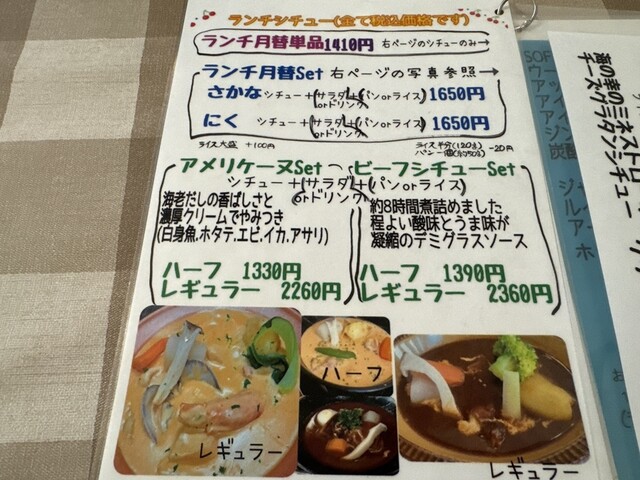 ランチシチュー(全て税込価格です)
ランチ月替単品1410円 右ページのシチューのみ→
ランチ月替Set 右ページの写真参照→
さかな シチュー+(サラダorドリンク)+(パンorライス) 1650円
にく シチュー+(サラダorドリンク)+(パンorライス) 1650円
ライス大盛 +100円
ライス半分(120g)
パン一個(約50g) -20円
アメリケーヌSet ビーフシチューSet
シチュー+(サラダorドリンク)+(パンorライス)
海老だしの香ばしさと
濃厚クリームでやみつき
(白身魚.ホタテ.エビ.イカ.アサリ)
ハーフ 1330円
レギュラー 2260円
約8時間煮詰めました
程よい酸味とうま味が
凝縮のデミグラスソース
ハーフ 1390円
レギュラー 2360円
レギュラー
ハーフ
レギュラー
SOF
ウー
アイ
アイ
ジン
炭酸
ジャ
ジル
アー
ホ
海の幸のミネストロ
チーズグラタンシチュー